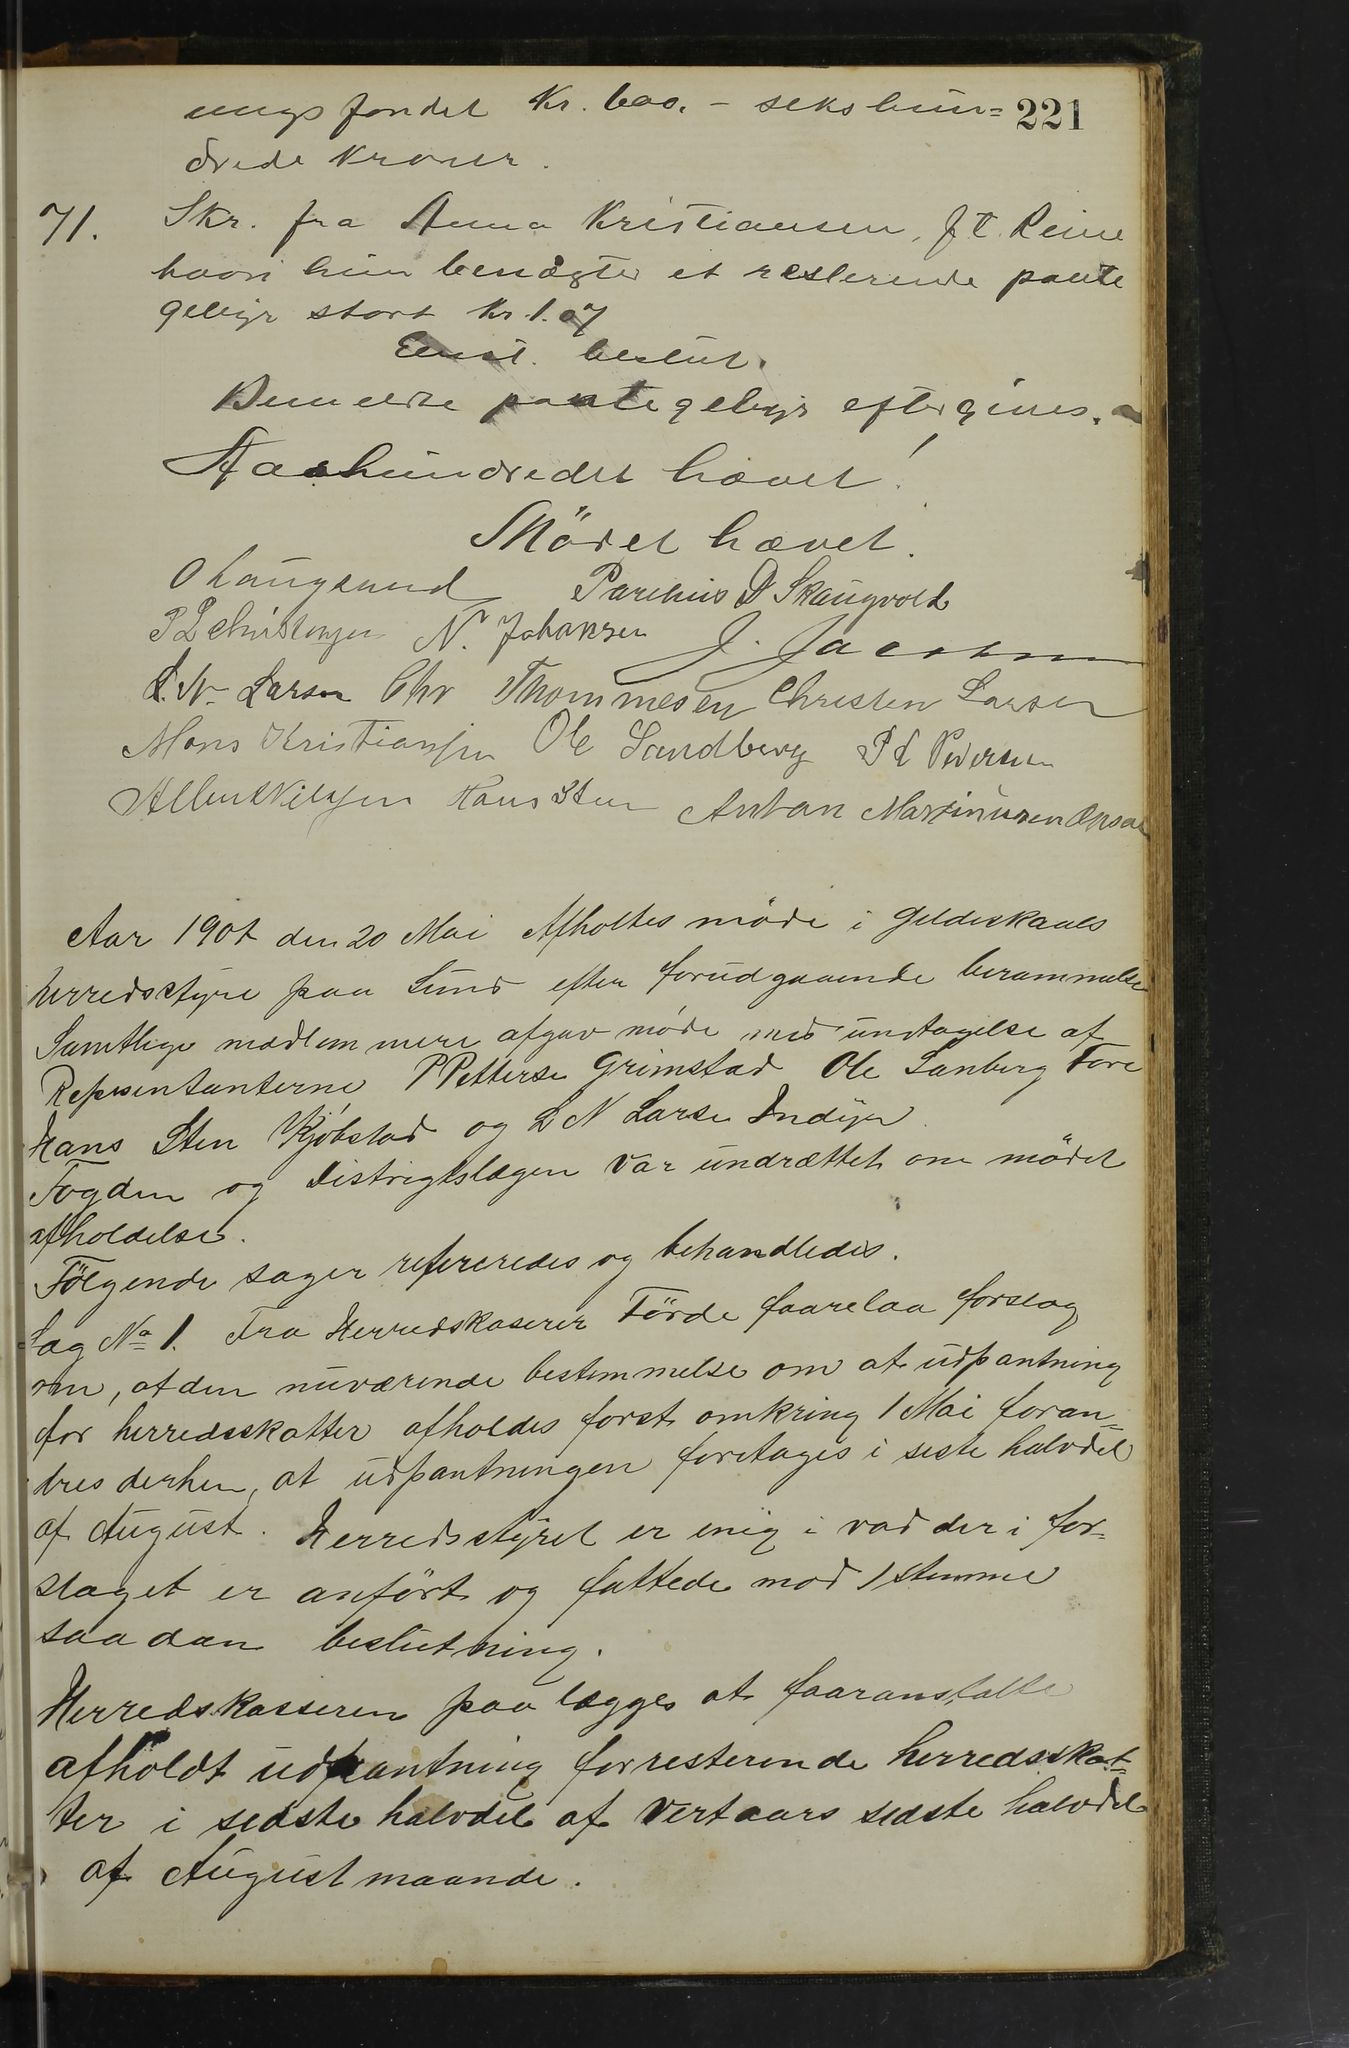 ungsfondet Kr. 600. - seks hun= 221
drede Kroner.
71. Skr. fra Anna Kristiansen, f. t. Reine
hvori hun benægter et resterende pante
gebyr stort kr. 1.07
Enst. beslut.
Bemeldte pantegebyr eftergives.
Aarhundredet hævet!
Mödet hævet.
O Laugsand Parelius D Skaugvold
P L Christensen N. Johansen J. Jacobsen
L. N. Larsen Chr Thommesen Christen Larsen
Mons Kristiansen Ole Sandberg P L Pedersen
Albert Nilsen Hans Sten Anton Martinusen
Aar 1901 den 20 Mai Afholtes möde i Gildeskaals
herredsstyre paa Lund efter forudgaaende berammelse
Samtlige medlemmere afgav møde med undtagelse af
Repsentanterne P Petterse Grimstad Ole Sanberg Fore
Hans Sten Kjöbstad og L N Larse Indijer
Fogden og Distrigtslægen var undrættet om mødet
afholdelse.
Fölgende sager refereredes og behandledes.
Sag No 1. Fra Herredskaserer Förde faarelaa forslag
om, at den nuværende bestemmelse om at udpantning
for herredsskatter afholdes først omkring 1 Mai foran-
dres derhen, at udpantningen foretages i siste halvdel
af August. Herredsstyret er enig i vad der i for-
slaget er anført og fattede mod 1 stemme
saadan beslutning.
Herredskasseren paalægges at faaranstalte
afholdt udpantning for resterende herredsskat-
ter i sidste halvdel af vert aars sidste halvdel
af August maande.